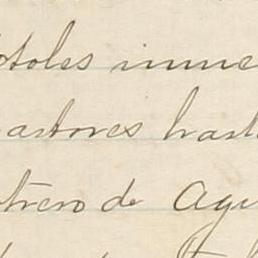 otoles inme
astores hast
trero de Agu